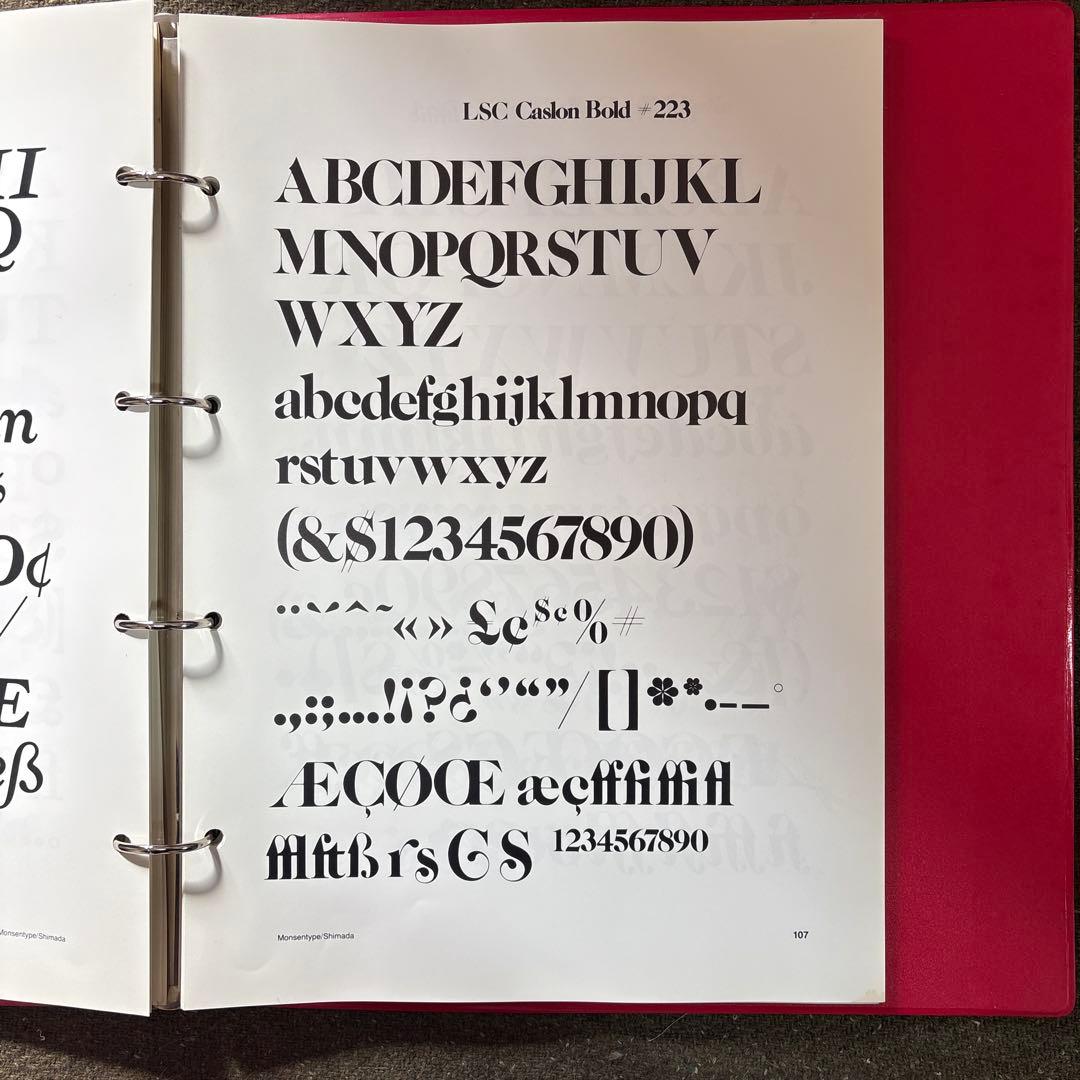 II
Q
m
s
0¢
/
Œ
eß
Monsentype/Shimada
LSC Caslon Bold #223
ABCDEFGHIJKL
MNOPQRSTUV
WXYZ
abcdefghijklmnopq
rstuvwxyz
(&$1234567890)
¨ˋˊˆ˜«» £¢$¢%#
.,:;...!¡?¿‘’“”/[]**•–—°
ÆÇØŒ æçfffiffifl
fflftß r s G S 1234567890
Monsentype/Shimada
107